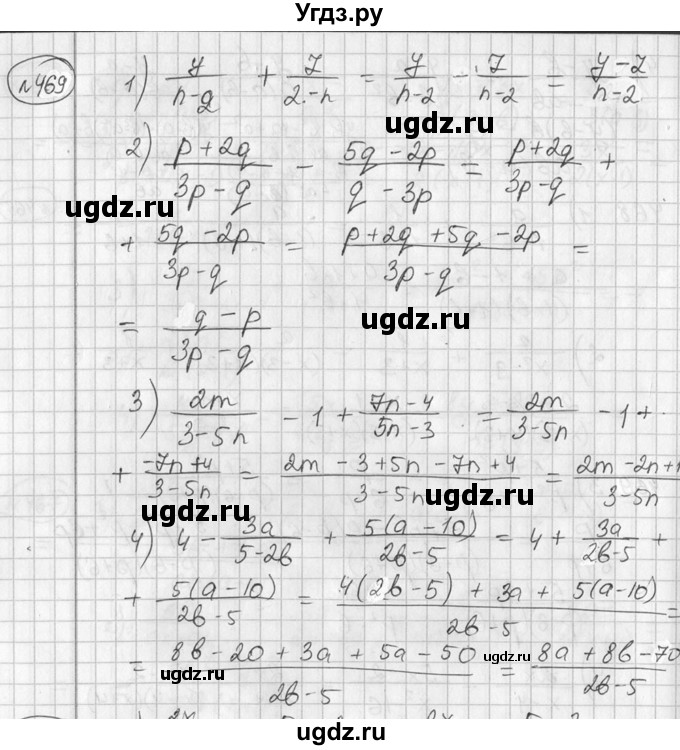 Угдз.ру
№469
1) y/(n-2) + 7/(2-n) = y/(n-2) - 7/(n-2) = (y-7)/(n-2)
ugdz.ru
2) (p+2q)/(3p-q) - (5q-2p)/(q-3p) = (p+2q)/(3p-q) +
ugdz.ru
+ (5q-2p)/(3p-q) = (p+2q+5q-2p)/(3p-q) =
ugdz.ru
= (q-p)/(3p-q)
3) 2m/(3-5n) - 1 + (7n-4)/(5n-3) = 2m/(3-5n) - 1 +
+ (-7n+4)/(3-5n) = (2m-3+5n-7n+4)/(3-5n) = (2m-2n+1)/(3-5n)
ugdz.ru ugdz.ru
4) 4 - 3a/(5-2b) + 5(a-10)/(2b-5) = 4 + 3a/(2b-5) +
+ 5(a-10)/(2b-5) = (4(2b-5) + 3a + 5(a-10))/(2b-5) =
= (8b-20+3a+5a-50)/(2b-5) = (8a+8b-70)/(2b-5)
ugdz.ru ugdz.ru
ugdz.ru